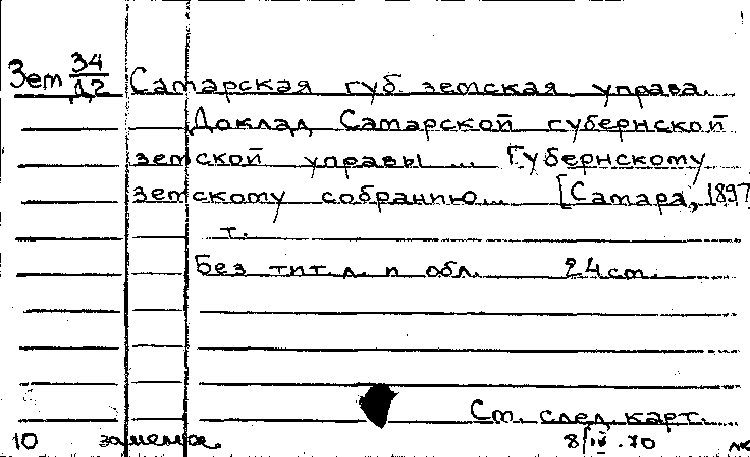 Зем 34/Д2 Самарская губ. земская управа.
Доклад Самарской губернской
земской управы ... Губернскому
земскому собранию... [Самара, 1897
т.
Без тит. л. и обл. 24 см.
См. след. карт.
10 замена. 8/IV.70